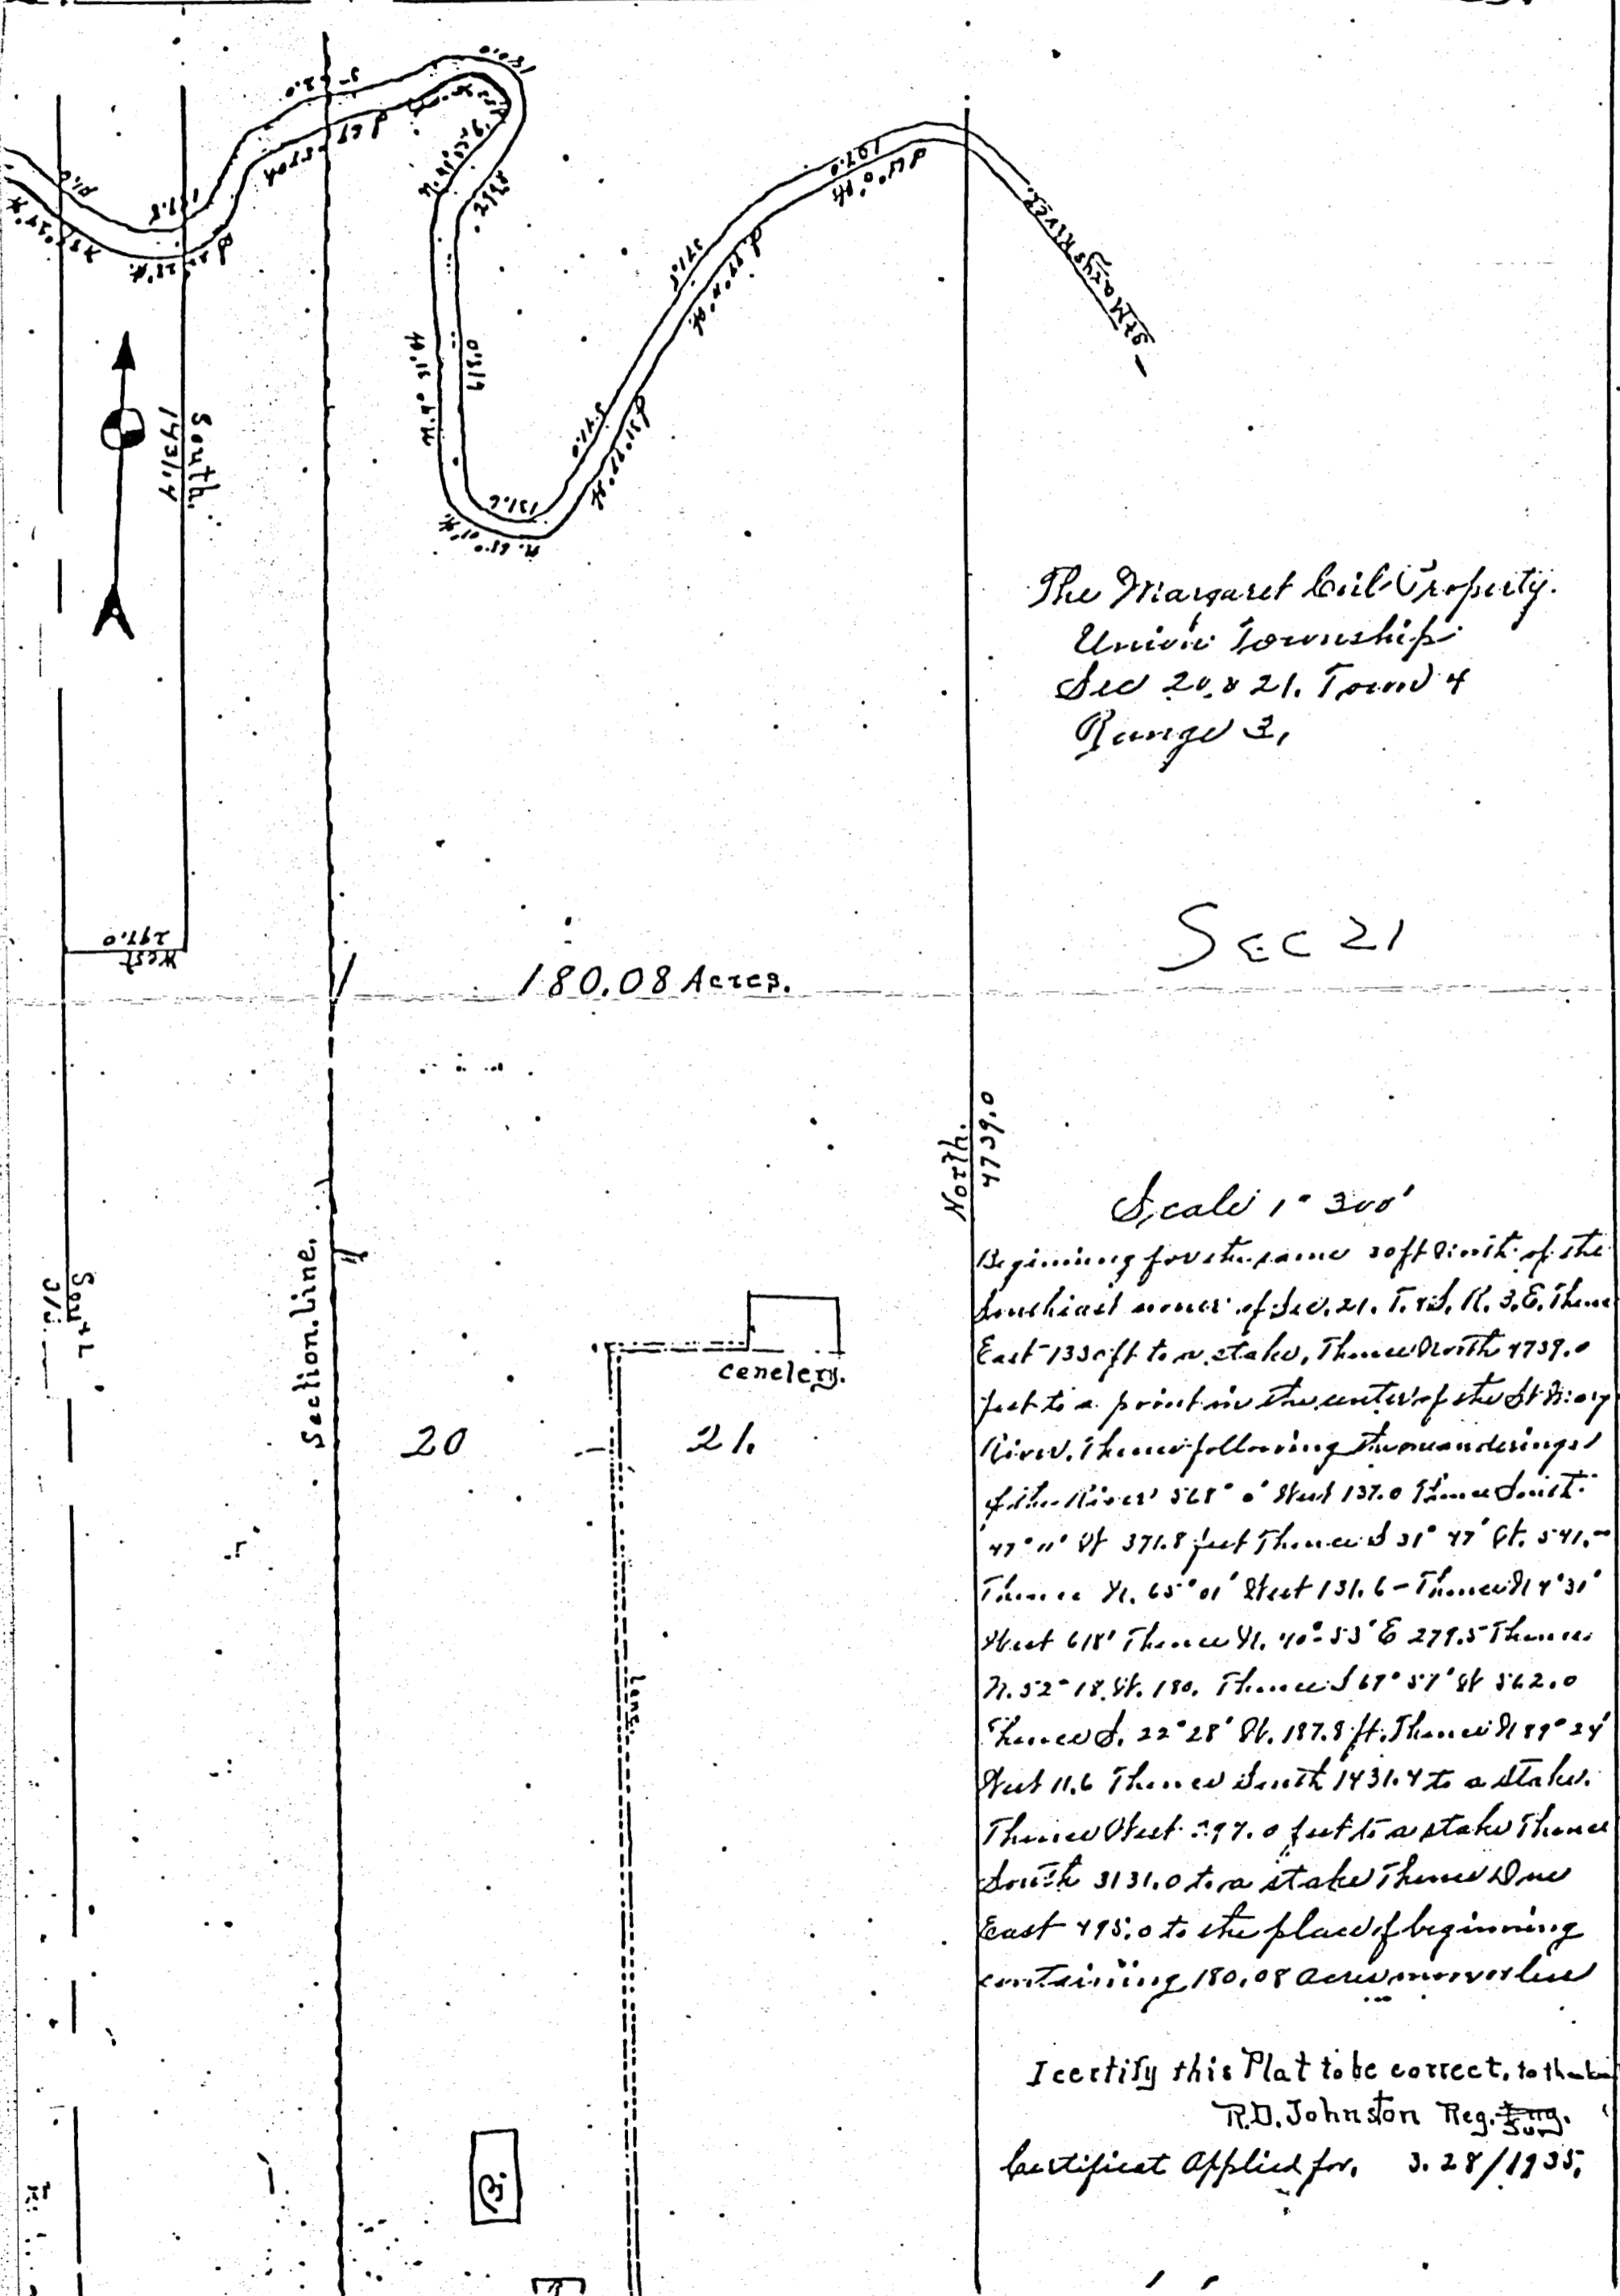 St Marys River
1070
S 68° 0' W.
371.8
S 47° 11' W.
541.0
S 31° 47' W.
131.6
N. 65° 01' W.
618.0
N. 4° 31' W.
279.5
180.0
562.0
187.8
S 22° 28' W.
South.
1431.4
West
297.0
The Margaret Property.
Union Township
Sec 20, & 21. Town 4
Range 3,
SEC 21
180.08 Acres.
North.
4739.0
Section. Line.
South
313
cenelery.
20
21.
Lane.
B.
Scale 1" 300'
Beginning for the same 30 ft North of the
Southeast corner of Sec. 21. T. 4 S. R. 3. E. Thence
East 1330 ft to a stake, Thence North 4739.0
feet to a point in the center of the St Mary
River. Thence following the meanderings
of the River S 68° 0' West 137.0 Thence South
47° 11' W 371.8 feet Thence S 31° 47' W. 541.
Thence N. 65° 01' West 131.6 - Thence N 4° 31'
West 618' Thence N. 40° 53' E 279.5 Thence
N. 52° 18. W. 180. Thence S 67° 57' W 562.0
Thence S. 22° 28' W. 187.8 ft. Thence N 89° 24'
West 11.6 Thence South 1431.4 to a stake.
Thence West 297.0 feet to a stake Thence
South 3131.0 to a stake Thence Due
East 495.0 to the place of beginning
containing 180.08 acres more or less
I certify this Plat to be correct. to the
R.D. Johnston Reg. Eng. Sur
Certificat Applied for. 3. 28/1935.